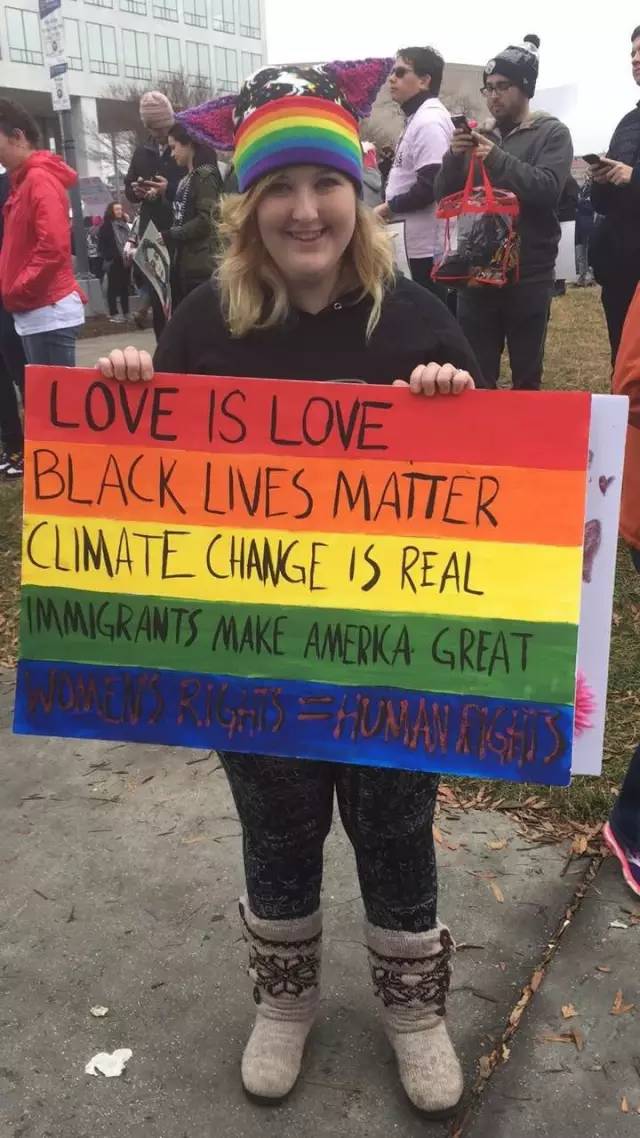 LOVE IS LOVE
BLACK LIVES MATTER
CLIMATE CHANGE IS REAL
IMMIGRANTS MAKE AMERICA GREAT
WOMEN'S RIGHTS = HUMAN RIGHTS